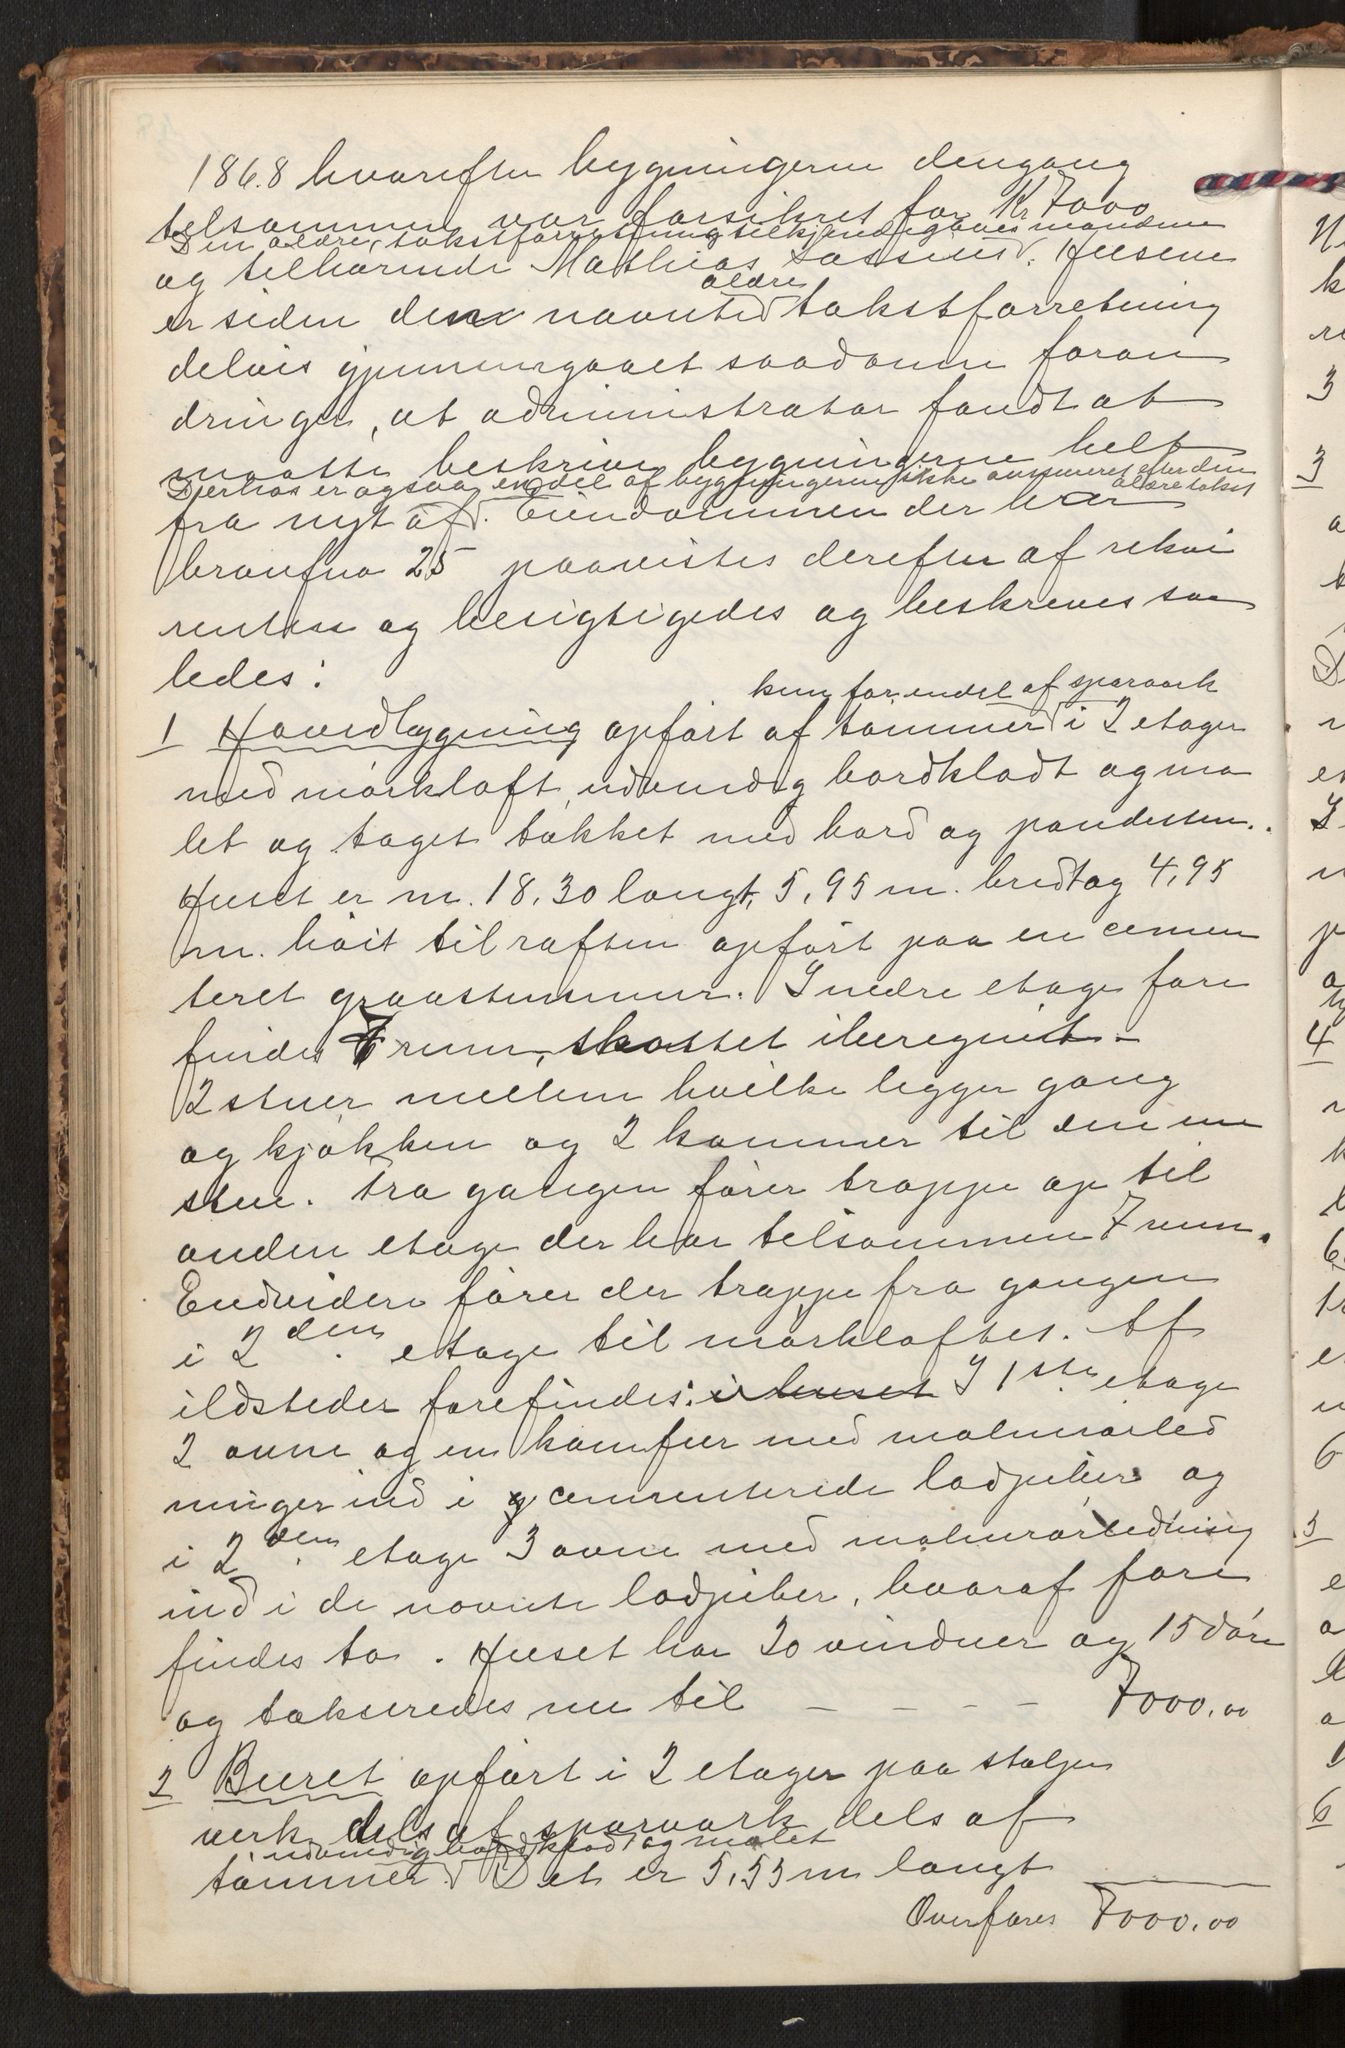 1868 hvorefter bygningerne dengang
tilsammen var forsikret for Kr 7000
Den ældre takstforretning tilkjendegaves mændene
og tilhørende Mathias Lassen. Husene
er siden den nævnte ældre takstforretning
delvis gjennemgaaet saadanne foran
dringer, at administrator fandt at
maatte beskrive bygningerne helt
Derhos er ogsaa en del af bygningerne ikke assureret efter den ældre takst
fra nyt af. Eiendommen der har
branfno 25 paavistes derefter af rekvi
renten og besigtigedes og beskreves saa
ledes:
kun for endel af sperværk
1 Hovedbygning opført af tømmer i 2 etager
med mørkloft, udvendig bordklædt og ma
let og taget tækket med bord og pandesten.
Huset er m. 18,30 langt, 5,95 m. bredt og 4,95
m. høit til raften opført paa en cemen
teret graastensmur. I nedre etage fore
findes 7 rum, skottet iberegnet -
2 stuer mellem hvilke ligger gang
og kjøkken og 2 kammer til den ene
stue. Fra gangen fører trappe op til
anden etage der har tilsammen 7 rum.
Endvidere fører der trappe fra gangen
i 2den etage til mørkloftet. Af
ildsteder forefindes: i huset I 1ste etage
2 ovne og en komfur med malmrørled
ninger ind i cementerede ladpiber og
i 2den etage 3 ovne med malmrørledning
ind i de nævnte ladpiber, hvoraf fore
findes to. Huset har 20 vinduer og 15 døre
og takseredes nu til - - - - 7000,00
2 Buret opført i 2 etager paa stolpe
verk dels af sperværk dels af
udvendig bordklædt og malet
tømmer. Det er 5,55 m langt
Overføres 7000,00